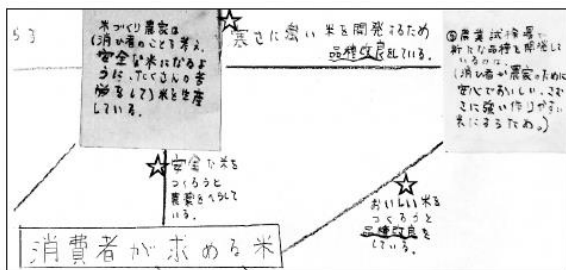 米づくり農家は
(消ひ者のことを考え、
安全な米になるよ
うに、たくさんの苦
労をして)米を生産
している。
寒さに強い米を開発するため
品種改良をしている。
⑤農業試験場で
新たな品種を開発して
いるのは、
(消ひ者や農家のために
安心でおいしい、さむ
さに強い作りやすい
米にするため。)
安全な米を
つくろうと
農薬をへらして
いる。
おいしい米を
つくろうと
品種改良を
している。
消費者が求める米